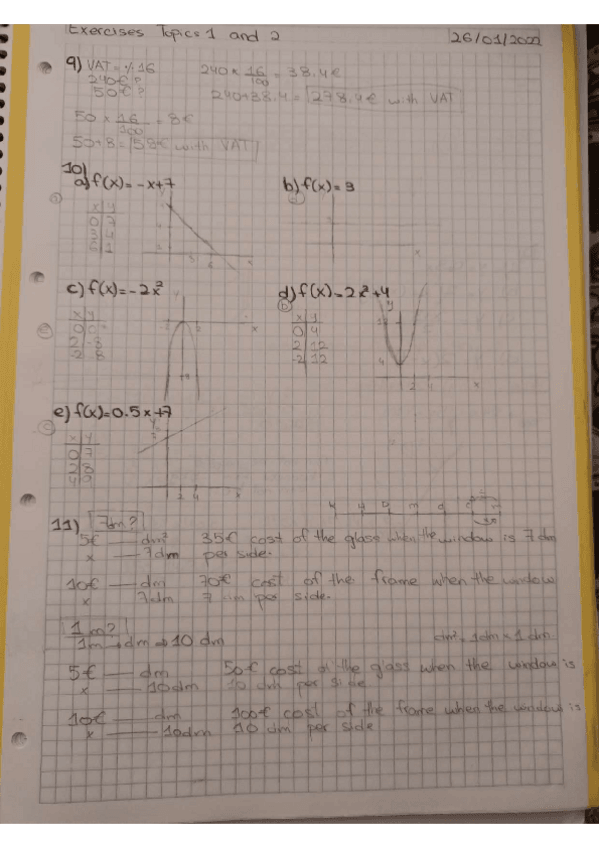 Exercises Topics 1 and 2 26/01/
9) VAT = % 16 240 × 16/100 = 38.4€
240€? 240+38.4 = 278.4€ with VAT
50€?
50 × 16/100 = 8€
50+8 = 58€ with VAT
10)
a) f(x) = -x+7 b) f(x) = 3
x y
0 7
3 4
6 1
c) f(x) = -2x² d) f(x) = 2x²+4
x y x y
0 0 0 4
2 -8 2 12
-2 -8 -2 12
e) f(x) = 0.5x+7
x y
0 7
2 8
4 9
11) 7dm?
5€ — dm² 35€ cost of the glass when the window is 7 dm
x — 7dm per side.
10€ — dm 70€ cost of the frame when the window
x 7dm 7 dm per side.
1m?
1m → dm → 10 dm dm² = 1dm × 1 dm
5€ — dm 50€ cost of the glass when the window is
x — 10dm 10 dm per side
10€ — dm 100€ cost of the frame when the window is
x — 10dm 10 dm per side